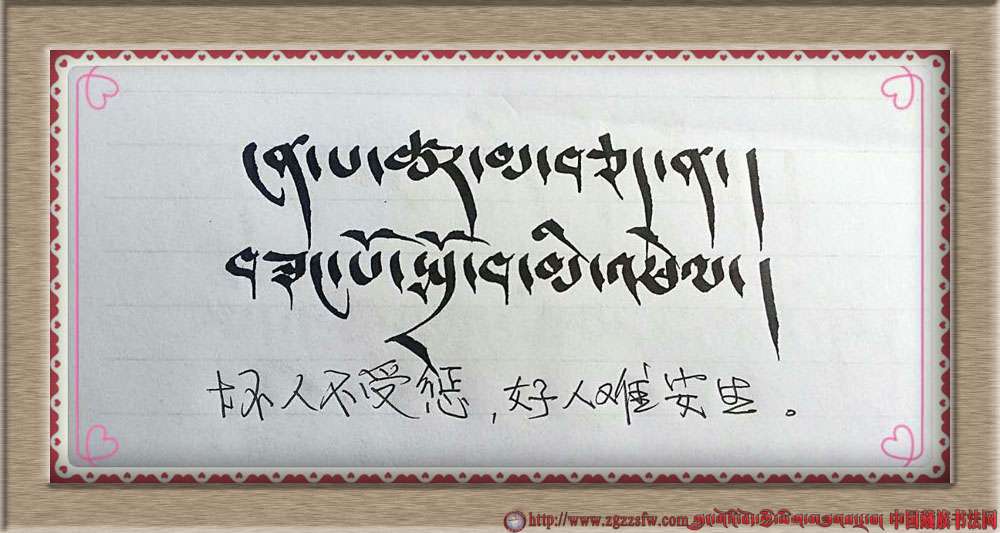 པ་ཚར་མ་བཅད་ན།
བཟང་པོ་སྐྱོང་བ་མི་
坏人不受惩,好人难安生。
http://www.zgzzsfw.com 中国藏族书法网